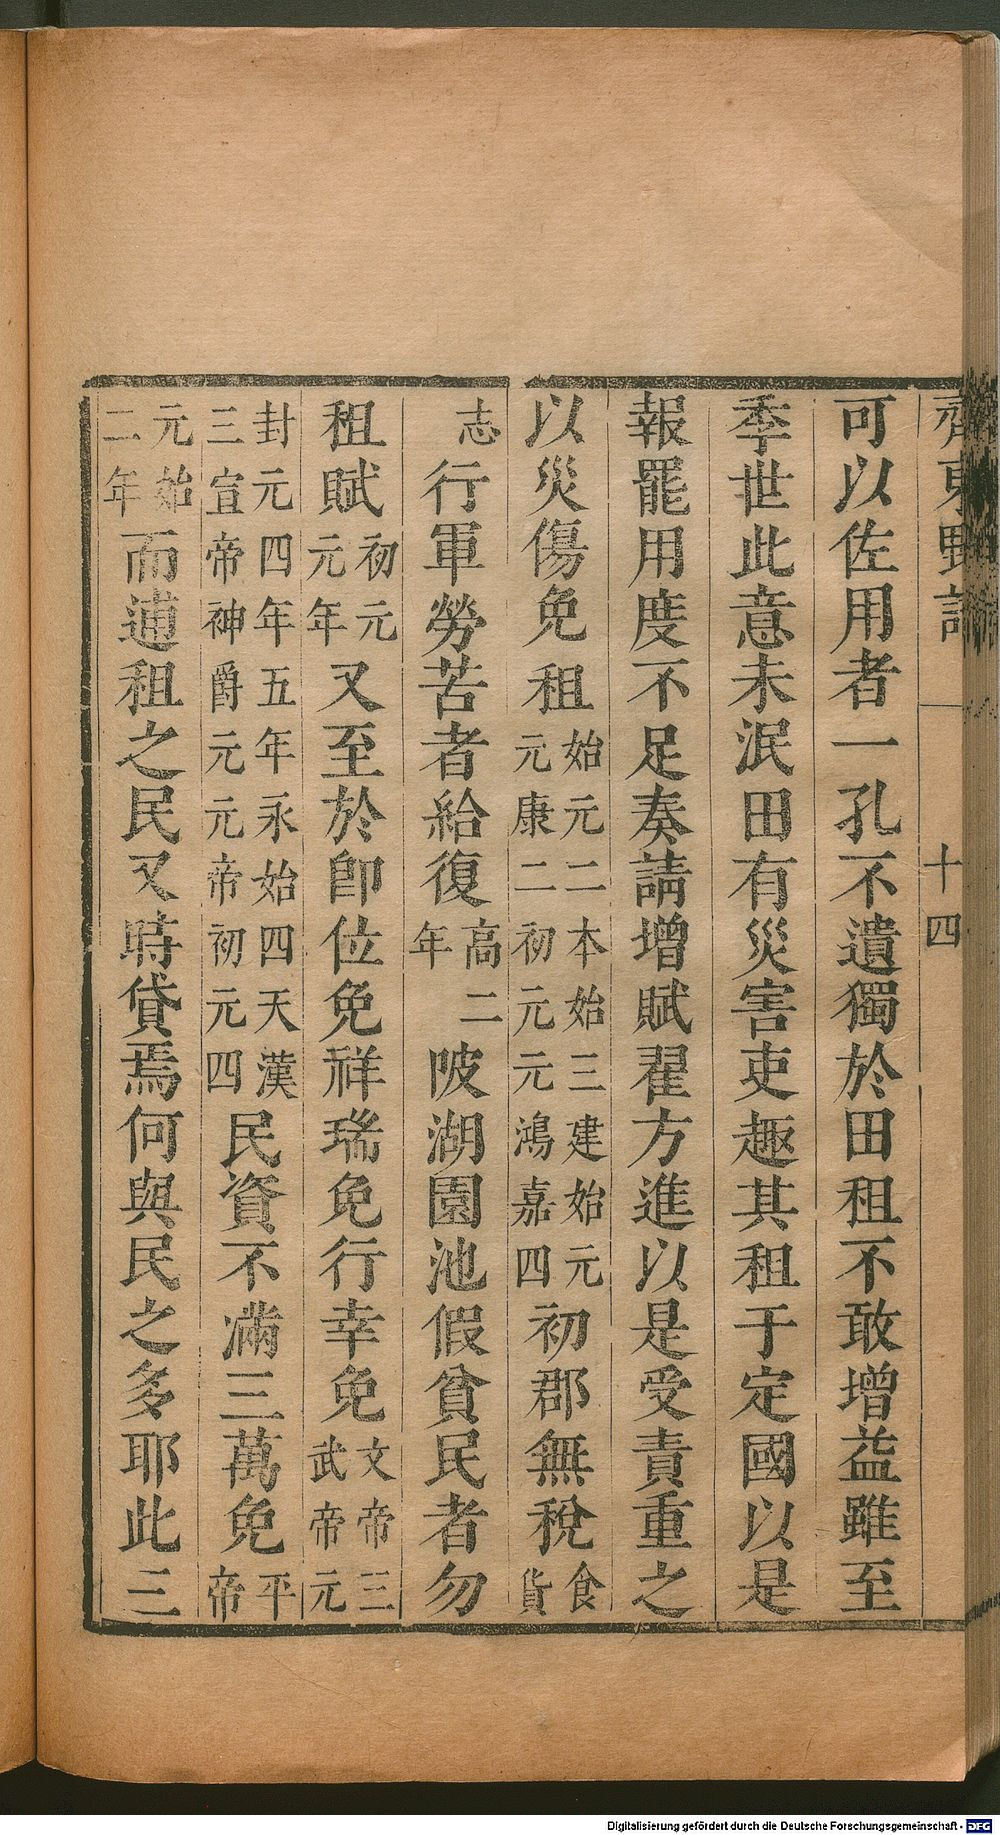 齊東野語 十四
可以佐用者一孔不遺獨於田租不敢增益雖至
季世此意未泯田有災害吏趣其租于定國以是
報罷用度不足奏請增賦翟方進以是受責重之
以災傷免租始元二本始三建始元元康二初元元鴻嘉四初郡無稅食貨
志行軍勞苦者給復高二年陂湖園池假貧民者勿
租賦初元元年又至於即位免祥瑞免行幸免文帝三武帝元
封元四年五年永始四天漢三宣帝神爵元元帝初元四民資不滿三萬免平帝
元始二年而逋租之民又時貸焉何與民之多耶此三
Digitalisierung gefördert durch die Deutsche Forschungsgemeinschaft - DFG